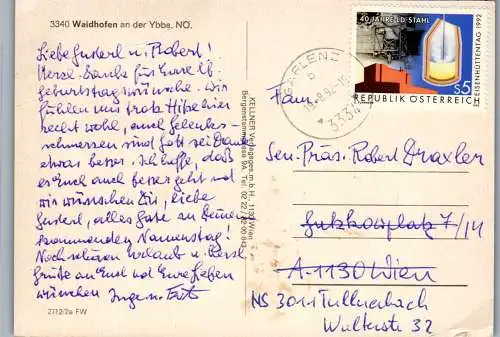 3340 Waidhofen an der Ybbs, NÖ.
Liebe Gusterl u. Robert!
Herzl. Dank für Eure lb.
Geburtstagswünsche. Wir
fühlen uns trotz Hitze hier
recht wohl, auch Gelenks-
schmerzen sind Gott sei Dank
etwas besser. Ich hoffe, daß
es Euch auch besser geht und
wir wünschen Dir, liebe
Gusterl, alles Gute zu Deinem
kommenden Namenstag!
Noch schönen Urlaub u. herzl.
Grüße an Euch und Eure Lieben
wünschen Inge u. Fritz
2712/2a FW
KELLNER Verlagsges.m.b.H., 1130 Wien
Bergenstammgasse 9A, Tel. 02 22 / 82 00 643
40 JAHRE LD-STAHL
EISENHÜTTENTAG 1992
S5
REPUBLIK ÖSTERREICH
GAFLENZ
3334
Fam.
Sen. Präs. Robert Draxler
Gutzkowplatz 7/14
A-1130 Wien
NS 3011 Tullnerbach